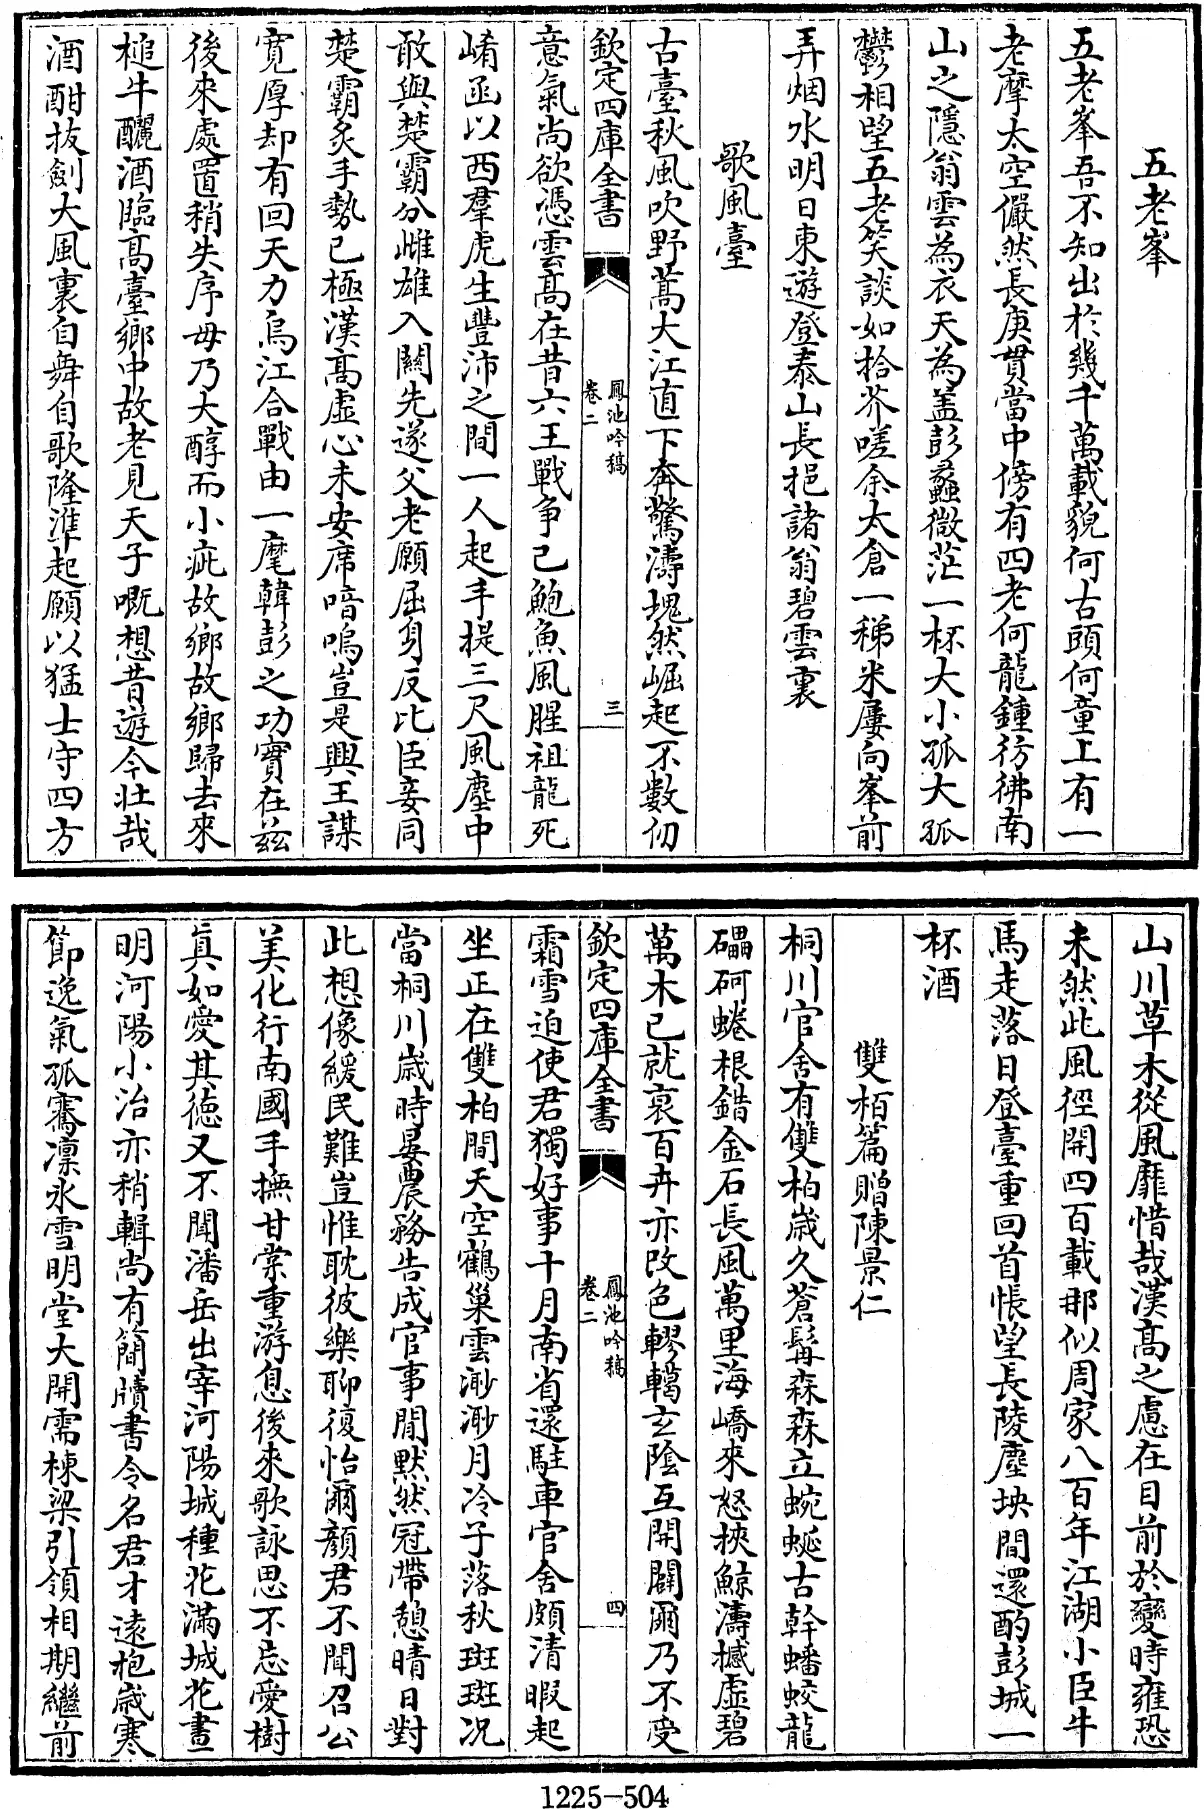 五老峯
五老峯吾不知出於幾千萬載貌何古頭何童上有一
老摩太空儼然長庚貫當中傍有四老何龍鍾彷彿南
山之隱翁雲為衣天為盖彭蠡微茫一杯大小孤大孤
鬱相望五老笑談如拾芥嗟余太倉一稊米屢向峯前
弄烟水明日東遊登泰山長挹諸翁碧雲裏
歌風臺
古臺秋風吹野蒿大江直下奔驚濤塊然崛起不數仞
欽定四庫全書
鳳池吟稿
卷二
三
意氣尚欲憑雲髙在昔六王戰爭已鮑魚風腥祖龍死
崤函以西羣虎生豐沛之間一人起手提三尺風塵中
敢與楚霸分雌雄入關先遂父老願屈身反比臣妾同
楚霸炙手勢已極漢髙虛心未安席喑嗚豈是興王謀
寛厚却有回天力烏江合戰由一麾韓彭之功實在兹
後來處置稍失序毋乃大醇而小疵故鄉故鄉歸去來
槌牛釃酒臨髙臺鄉中故老見天子嘅想昔遊今壯哉
酒酣拔劍大風裏自舞自歌隆準起願以猛士守四方
山川草木從風靡惜哉漢髙之慮在目前於變時雍恐
未然此風徑開四百載那似周家八百年江湖小臣牛
馬走落日登臺重回首悵望長陵塵坱間還酌彭城一
杯酒
雙栢篇贈陳景仁
桐川官舍有雙柏歲久蒼髯森森立蜿蜒古幹蟠蛟龍
礧砢蜷根錯金石長風萬里海嶠來怒挾鯨濤撼虛碧
萬木已就衰百卉亦改色轇轕玄陰互開闢爾乃不受
欽定四庫全書
鳳池吟稿
卷二
四
霜雪迫使君獨好事十月南省還駐車官舍頗清暇起
坐正在雙柏間天空鶴巢雲渺渺月冷子落秋斑斑况
當桐川歲時晏農務告成官事閒默然冠帶憩晴日對
此想像緩民難豈惟耽彼樂聊復怡爾顔君不聞召公
美化行南國手撫甘棠重游息後來歌詠思不忘愛樹
真如愛其徳又不聞潘岳出宰河陽城種花滿城花晝
明河陽小治亦稍輯尚有簡牘書令名君才遠抱歲寒
節逸氣孤騫凛冰雪明堂大開需棟梁引領相期繼前
1225-504